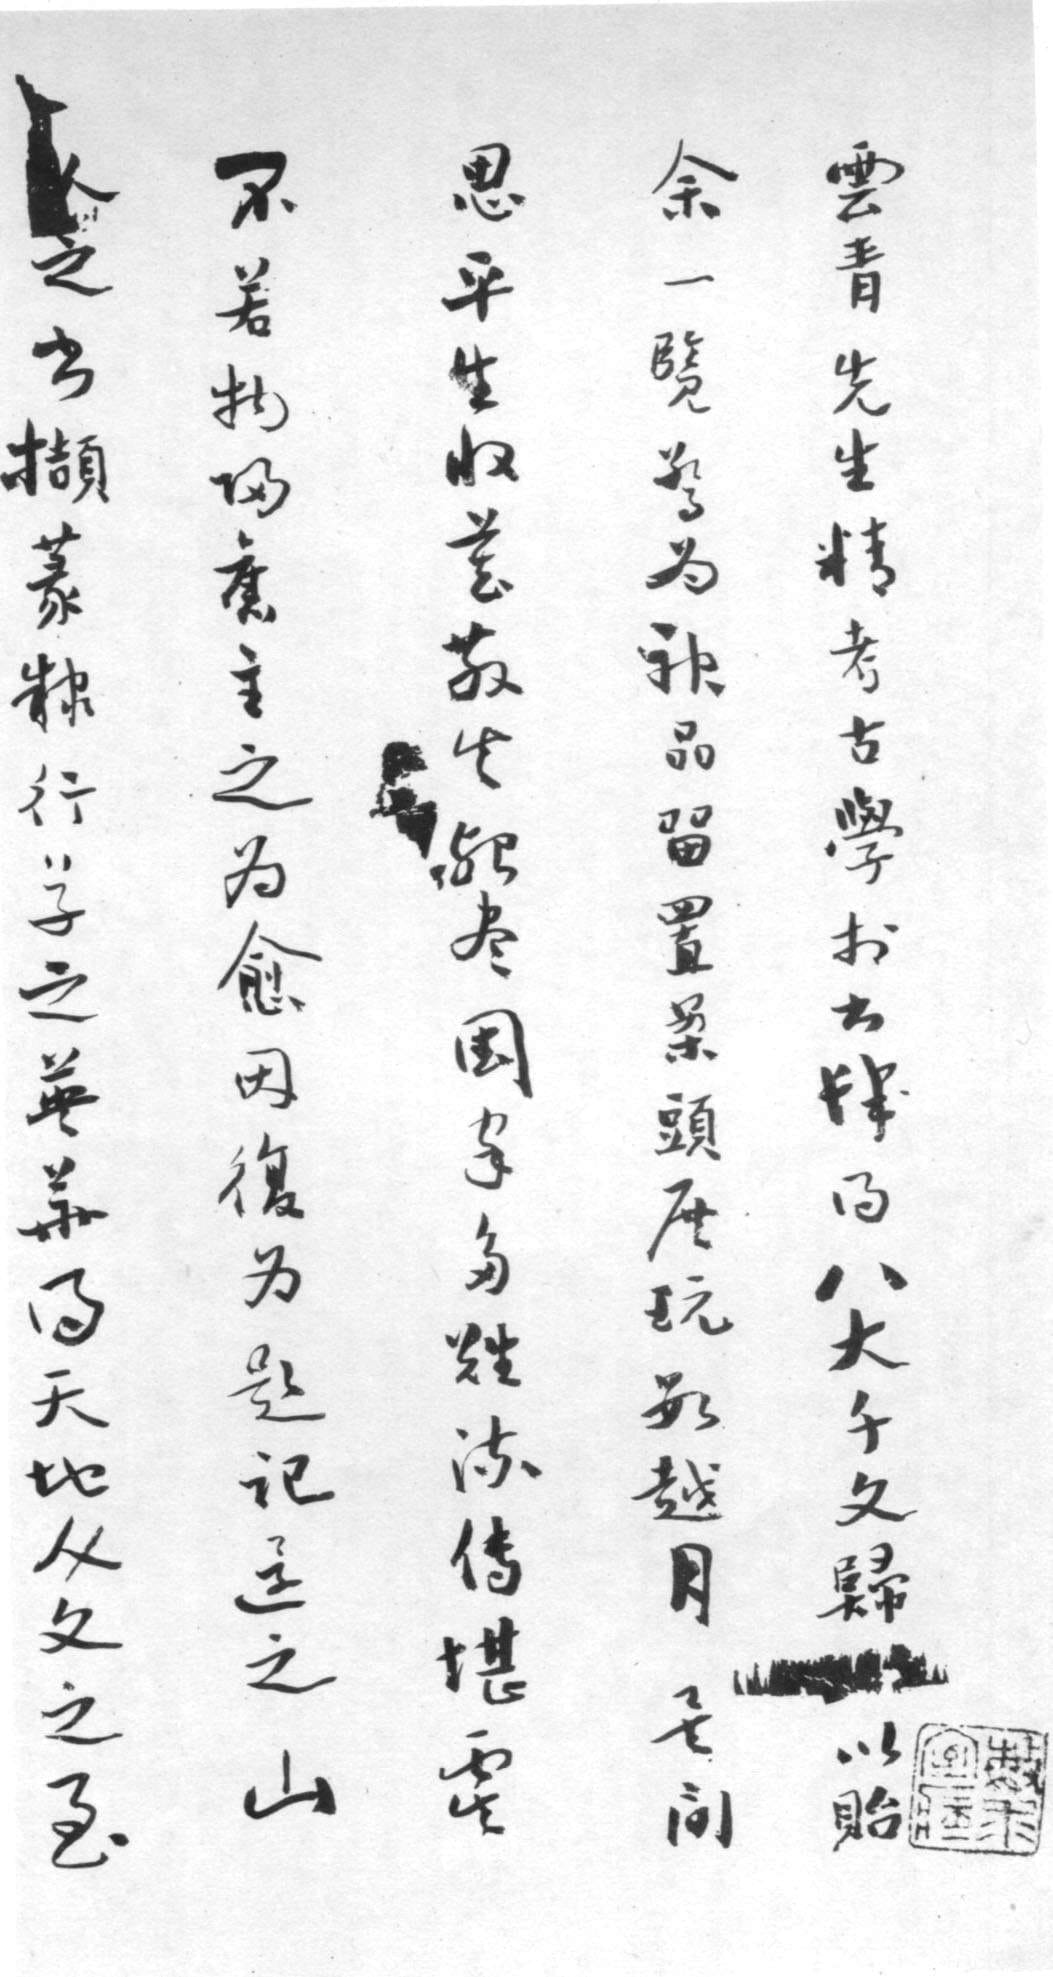 雲青先生精考古學於書肆得八大千文歸以貽
余一覽驚為神品留置案頭展玩數越月矣間
思平生收藏散失殆盡國家多難流傳堪虞
不若物歸舊主之為愈因復為題記還之山
人之書擷篆隸行草之英華得天地人文之至